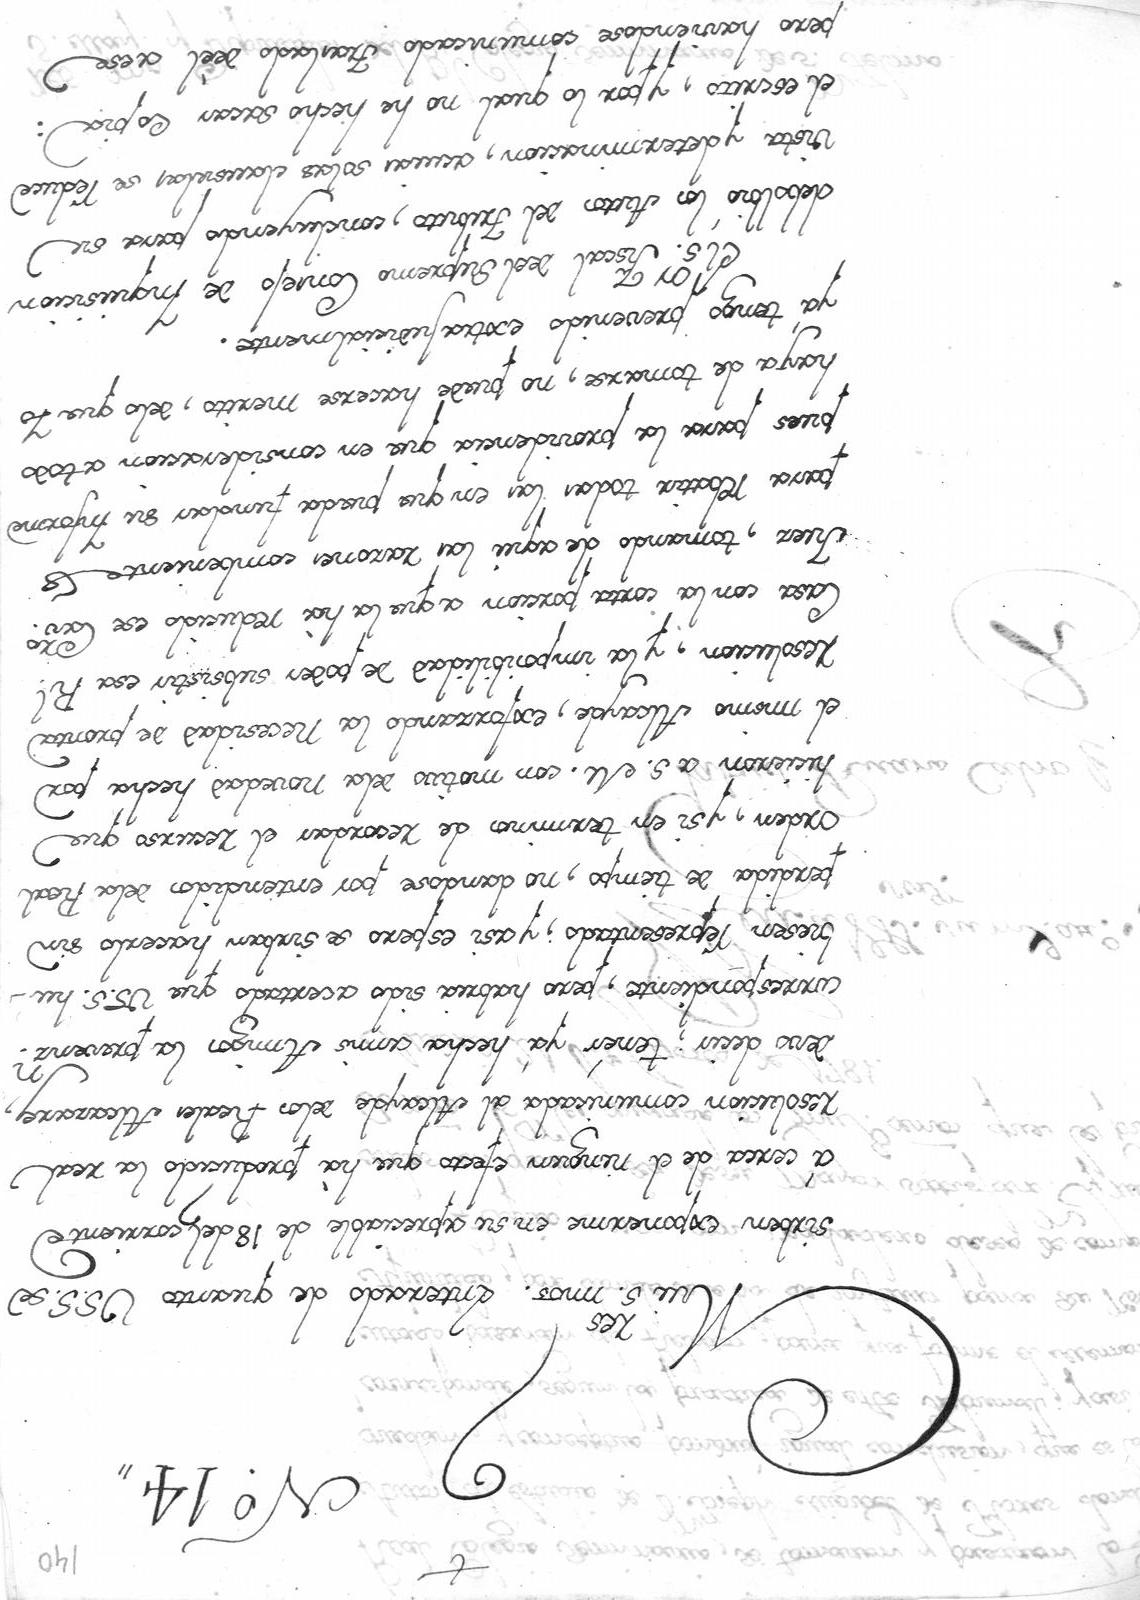 140
t
Nº. 14,,
Mui S.res mios. Enterado de quanto VSS. se
sirben exponerme en su apreciable de 18 del corriente
á cerca de el ningun efecto que há producido la real
resolucion comunicada al Alcayde delos Reales Alcazares,
devo decir; tener yá hecha amis Amigos la prevenz.n
correspondiente, pero habria sido acertado que VS.S. hu-
biesen representado; y asi espero se sirban hacerlo sin
perdida de tiempo, no dandose por entendidos dela Real
orden, y si en terminos de recordar el recurso que
hicieron a S. M. con motivo dela novedad hecha por
el mismo Alcayde, exforzando la necesidad de pronta
resolucion, y la imposibilidad de poder subsistir esa R.l
Casa con la corta porcion a que la há reducido ese Cav.ro
Juez, tomando de aqui las razones combenientes
para rebatir todas las en que pueda fundar su Informe
pues para la providencia que en consideracion atodo
haya de tomarse, no puede hacerse merito, delo que Yo
yá tengo prevenido extrajudicialmente.
El S.or Fiscal deel Supremo Consejo de Inquisicion
debolbió los Autos del Tributo, concluyendo para su
vista y determinacion, acuias solas clausulas se reduce
el escrito, y por lo qual no he hecho sacar Copia:
pero haviendose comunicado Traslado deel aese